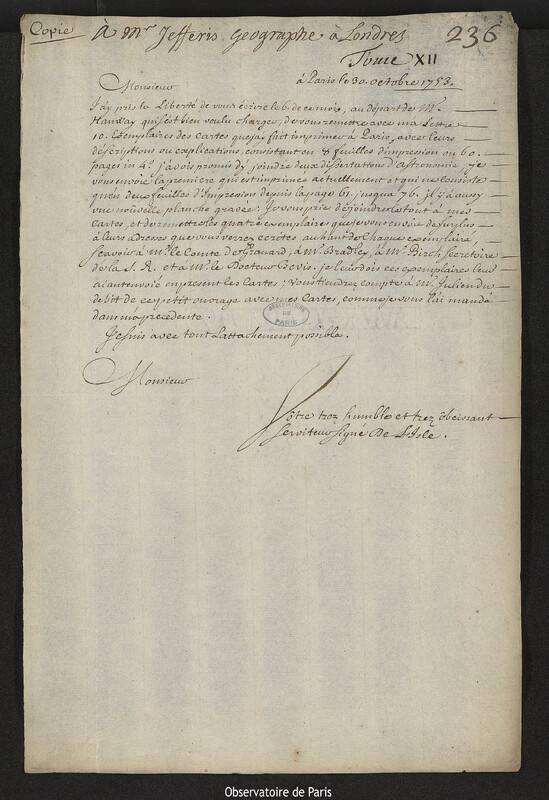 Copie
À Mr. Jefferis Geographe à Londres
236
Tome XII
à Paris le 30. octobre 1753.
Monsieur
J'ay pris la Liberté de vous écrire le 6. de ce mois, au départ de Mr.
Hanway qui s'est bien voulu charger, de vous remettre avec ma Lettre
10. Exemplaires des Cartes que j'ay fait imprimer à Paris, avec leurs
descriptions ou explications, consistant en 8 feuilles d'impression ou 60.
pages in 4.° j'avois promis d'y joindre deux dissertations d'astronomie, je
vous envoie la premiere qui est imprimée actuellement et qui ne consiste
qu'en deux feuilles d'Impression depuis la page 61. jusqu'a 76. il y a aussy
une nouvelle planche gravée: Je vous prie de joindre le tout à mes
Cartes, et de remettre les quatre exemplaires que je vous envoie de surplus
à leurs adresses que vous verrez ecrites au haut de Chaque exemplaire
scavoir à Mr. le Comte de à Mr. Bradley, à Mr. Birch Secretaire
de la S. R. et à Mr. le Docteur Bevis. je leur dois ces exemplaires leur
aiant envoié en present les Cartes; Vous tiendrez compte à Mr. Julien du
debit de ce petit ouvrage avec mes Cartes, comme je vous l'ai mandé
dans ma precedente.
OBSERVATOIRE
DE
PARIS
Je suis avec tout l'attachement possible.
Monsieur
Vôtre trez humble et trez obeissant
Serviteur signé De L'Isle.
Observatoire de Paris